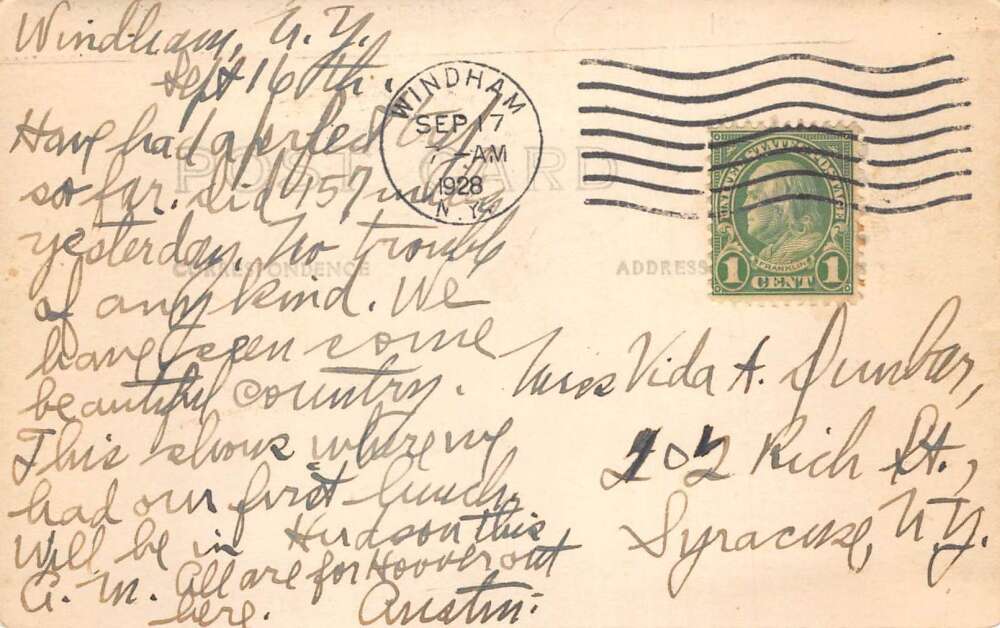 Windham, N. Y.
Sept 16th.
Have had a perfect day
so far. did 157 miles
yesterday. No trouble
of any kind. We
have seen some
beautiful country.
This shows where we
had our first lunch.
Will be in Hudson this
A. M. All are for Hoover out
here. Austin.
WINDHAM
SEP 17
7-AM
1928
N.Y.
POST CARD
CORRESPONDENCE
ADDRESS
UNITED STATES POSTAGE
FRANKLIN
1 CENT 1
Miss Vida A. Dunbar,
202 Rich St.,
Syracuse, N.Y.